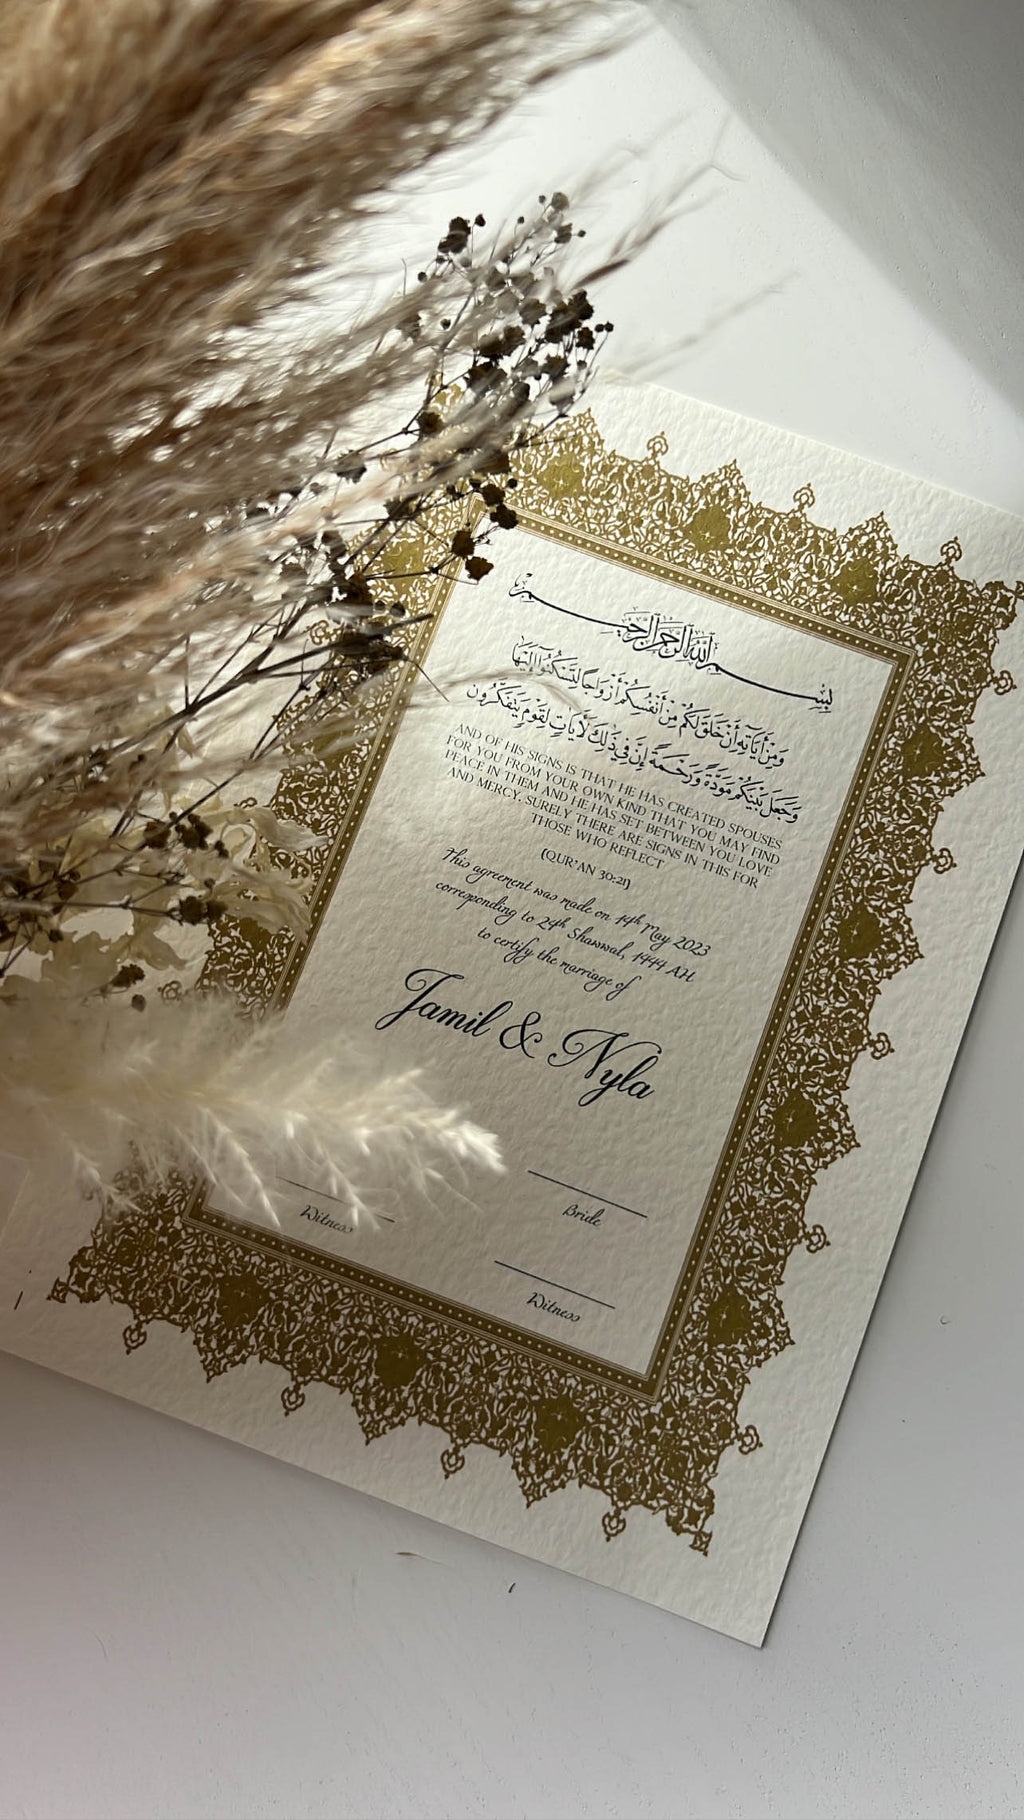 بسم الله الرحمن الرحيم
وَمِنْ أَيَاتِهِ أَنْ خَلَقَ لَكُم مِنْ أَنْفُسِكُمْ أَزْوَاجًا لِتَسْكُنُوا إِلَيْهَا
وَجَعَلَ بَيْنَكُم مَوَدَّةً وَرَحْمَةً إِنَّ فِي ذَلِكَ لَأَيَاتٍ لِقَوْمٍ يَتَفَكَّرُون
AND OF HIS SIGNS IS THAT HE HAS CREATED SPOUSES
FOR YOU FROM YOUR OWN KIND THAT YOU MAY FIND
PEACE IN THEM AND HE HAS SET BETWEEN YOU LOVE
AND MERCY. SURELY THERE ARE SIGNS IN THIS FOR
THOSE WHO REFLECT
(QUR'AN 30:21)
This agreement was made on 14th May 2023
corresponding to 24th Shawwal, 1444 AH
to certify the marriage of
Jamil & Nyla
Bride
Witness
Witness